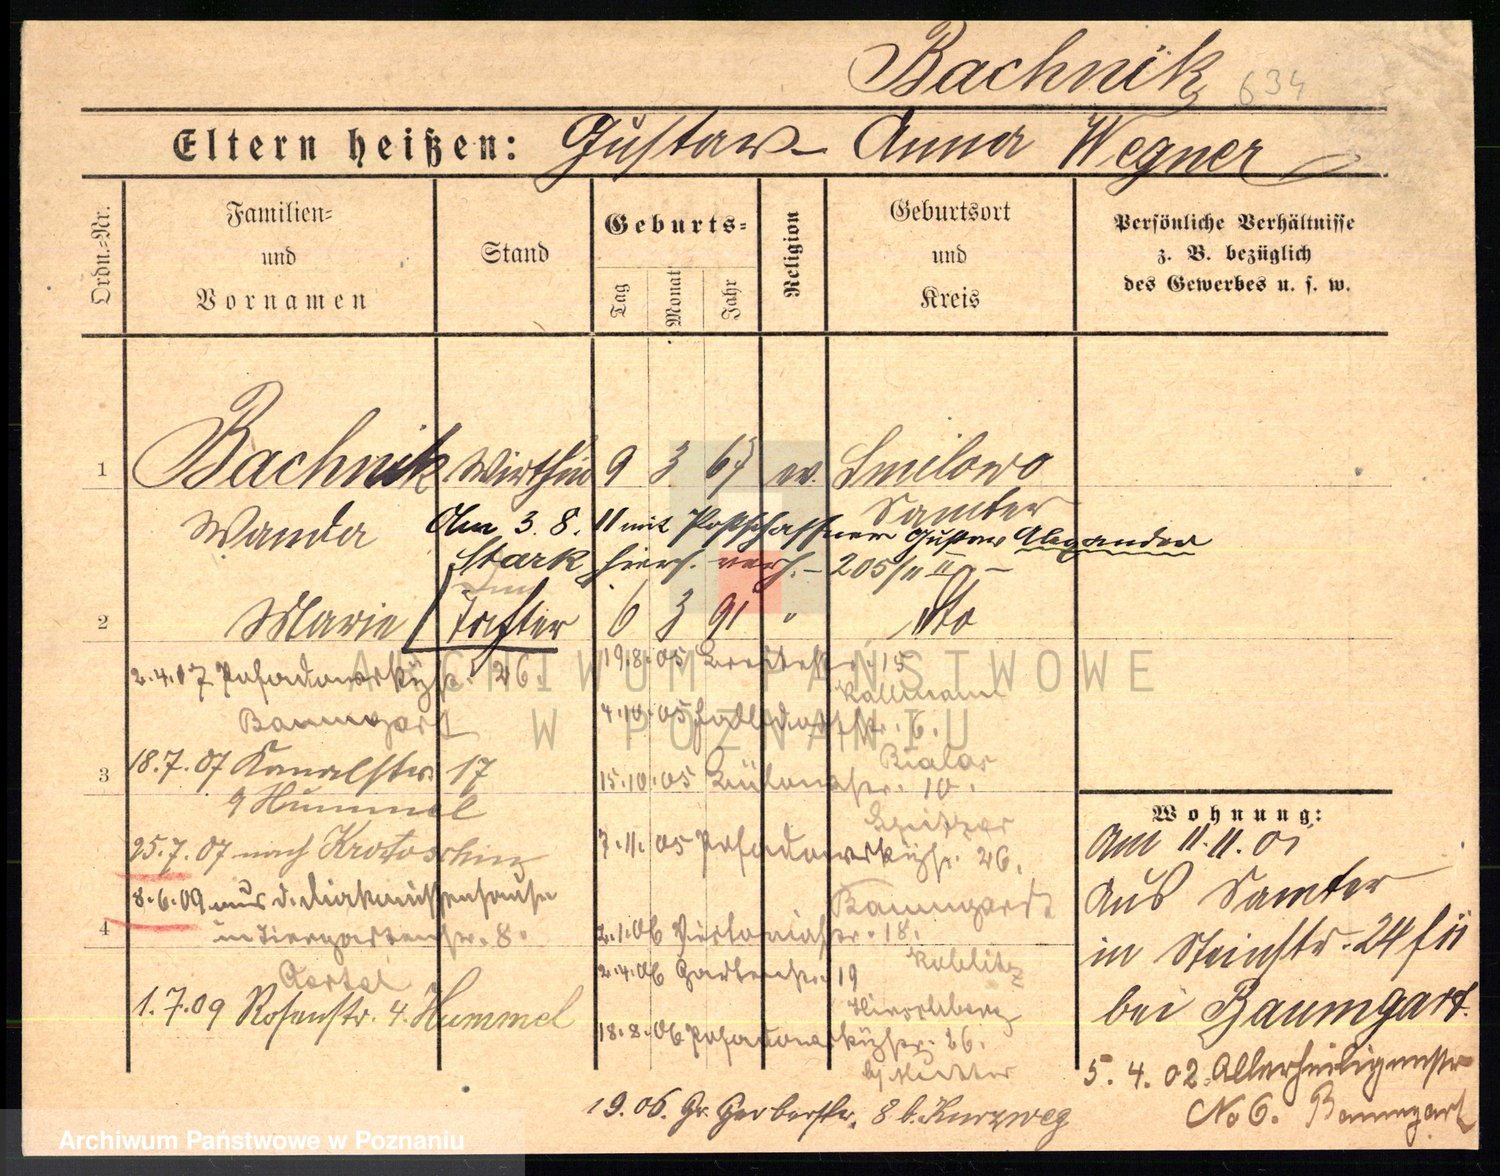 Bachnik 634
Eltern heißen: Gustav – Anna Wegner
Ordn.=Nr.
Familien=
und
Vornamen
Stand
Geburts=
Tag
Monat
Jahr
Religion
Geburtsort
und
Kreis
Persönliche Verhältnisse
z. B. bezüglich
des Gewerbes u. s. w.
1 Bachnik Wirthin 9 3 67 ev. Smilowo
Samter
Wanda Am 3. 8. 11 mit Postschaffner Gustav Alexander
Stark hiers. verh. – 205/11 II –
2 Marie Tochter 6 3 91 " dto
2.4.07 Posadowskystr. 26.
Baumgart
3 18.7.07 Kanalstr. 17
Hummel
25.7.07 nach Krotoschin
8.6.09 aus d. Diakonissenhause
4 in Tiergartenstr. 8.
Oertel
1.7.09 Rosenstr. 4. Hummel
19.8.05 Breitestr. 15
Kallmann
4.10.05 Halbdorfstr. 6.
Bialas
15.10.05 Bülowstr. 10.
7.11.05 Posadowskystr. 26.
Baumgardt
2.1.06 Victoriastr. 18.
Koblitz
2.4.06 Gartenstr. 19
Hirschberg
18.8.06 Posadowskystr. 26.
b/ Mutter
19.06. Gr. Gerberstr. 8 b. Kurzweg
Wohnung:
Am 11.11.01
aus Samter
in Steinstr. 24
bei Baumgart.
5. 4. 02. Allerheiligenstr.
No 6. Baumgart
ARCHIWUM PAŃSTWOWE
W POZNANIU
Archiwum Państwowe w Poznaniu